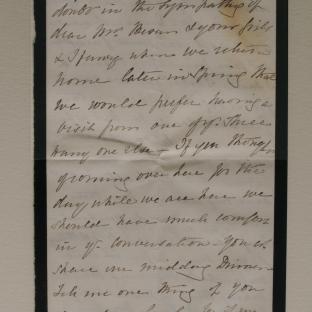 doubt in the sympathy of
dear Mrs. Bevan & your girls
& I fancy when we return
home later in Spring that
we would prefer having a
visit from one of three
than any one else - If you thought
of coming over here for the
day while we are here we
should have much comfort
in yr. conversation - You cd.
share our midday Dinner
Tell me one thing if you